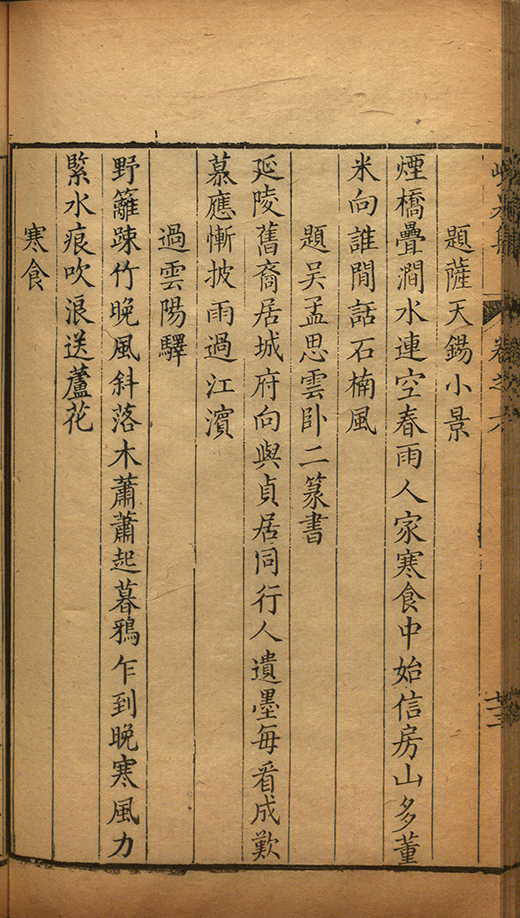 題薩天錫小景
煙橋疊澗水連空春雨人家寒食中始信房山多董
米向誰閒話石楠風
題吴孟思雲卧二篆書
延陵舊裔居城府向與貞居同行人遺墨每看成歎
慕應慚披雨過江濱
過雲陽驛
野籬踈竹晚風斜落木蕭蕭起暮鴉乍到晚寒風力
緊水痕吹浪送蘆花
寒食